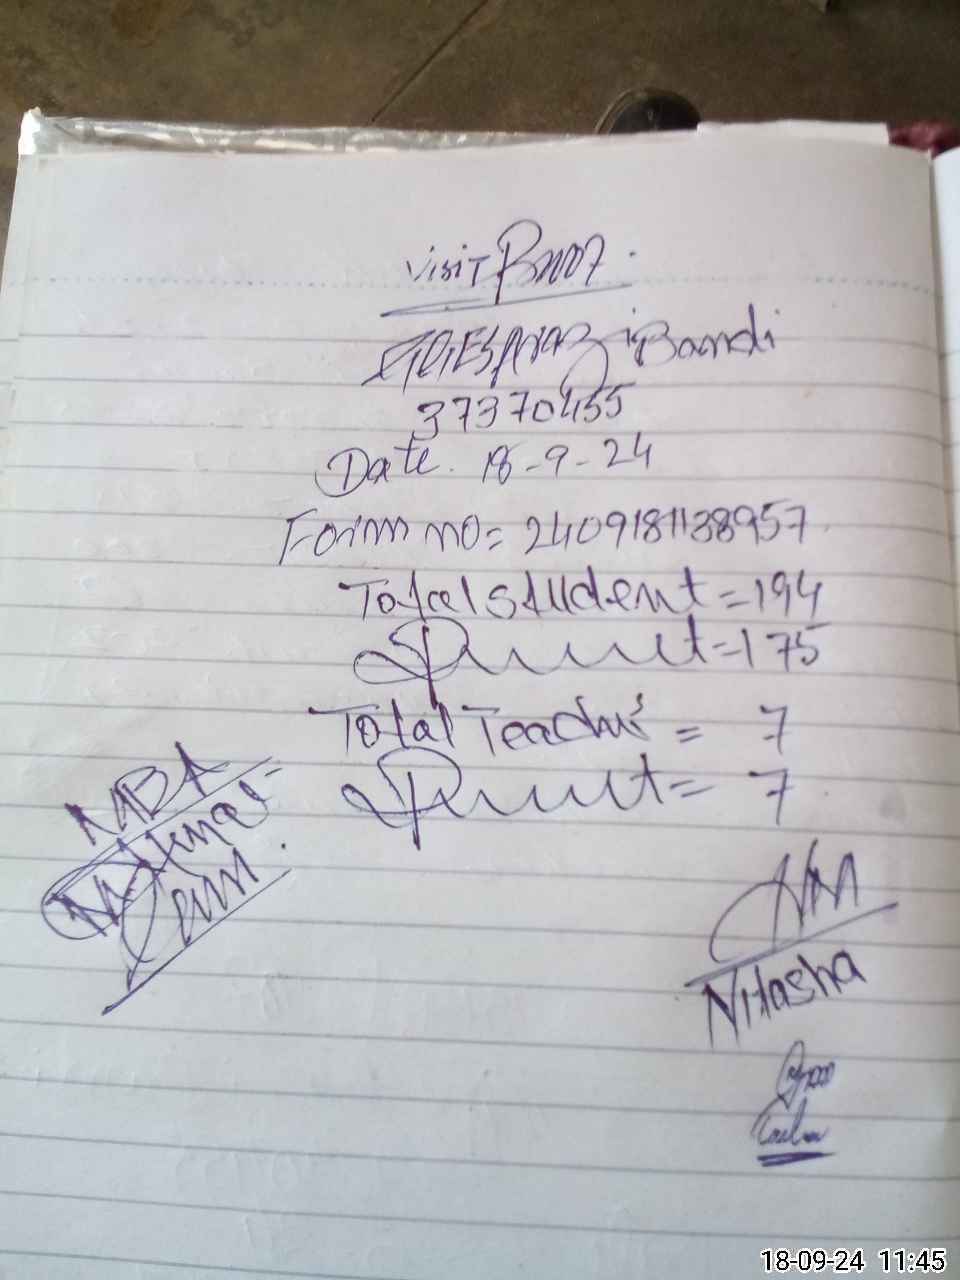 Visit
GGES Araz i Bandi
37370455
Date. 18-9-24
Form no= 2409181138957
Total student = 194
Present = 175
Total Teacher's = 7
Present = 7
MBA
HM
Nitasha
18-09-24 11:45